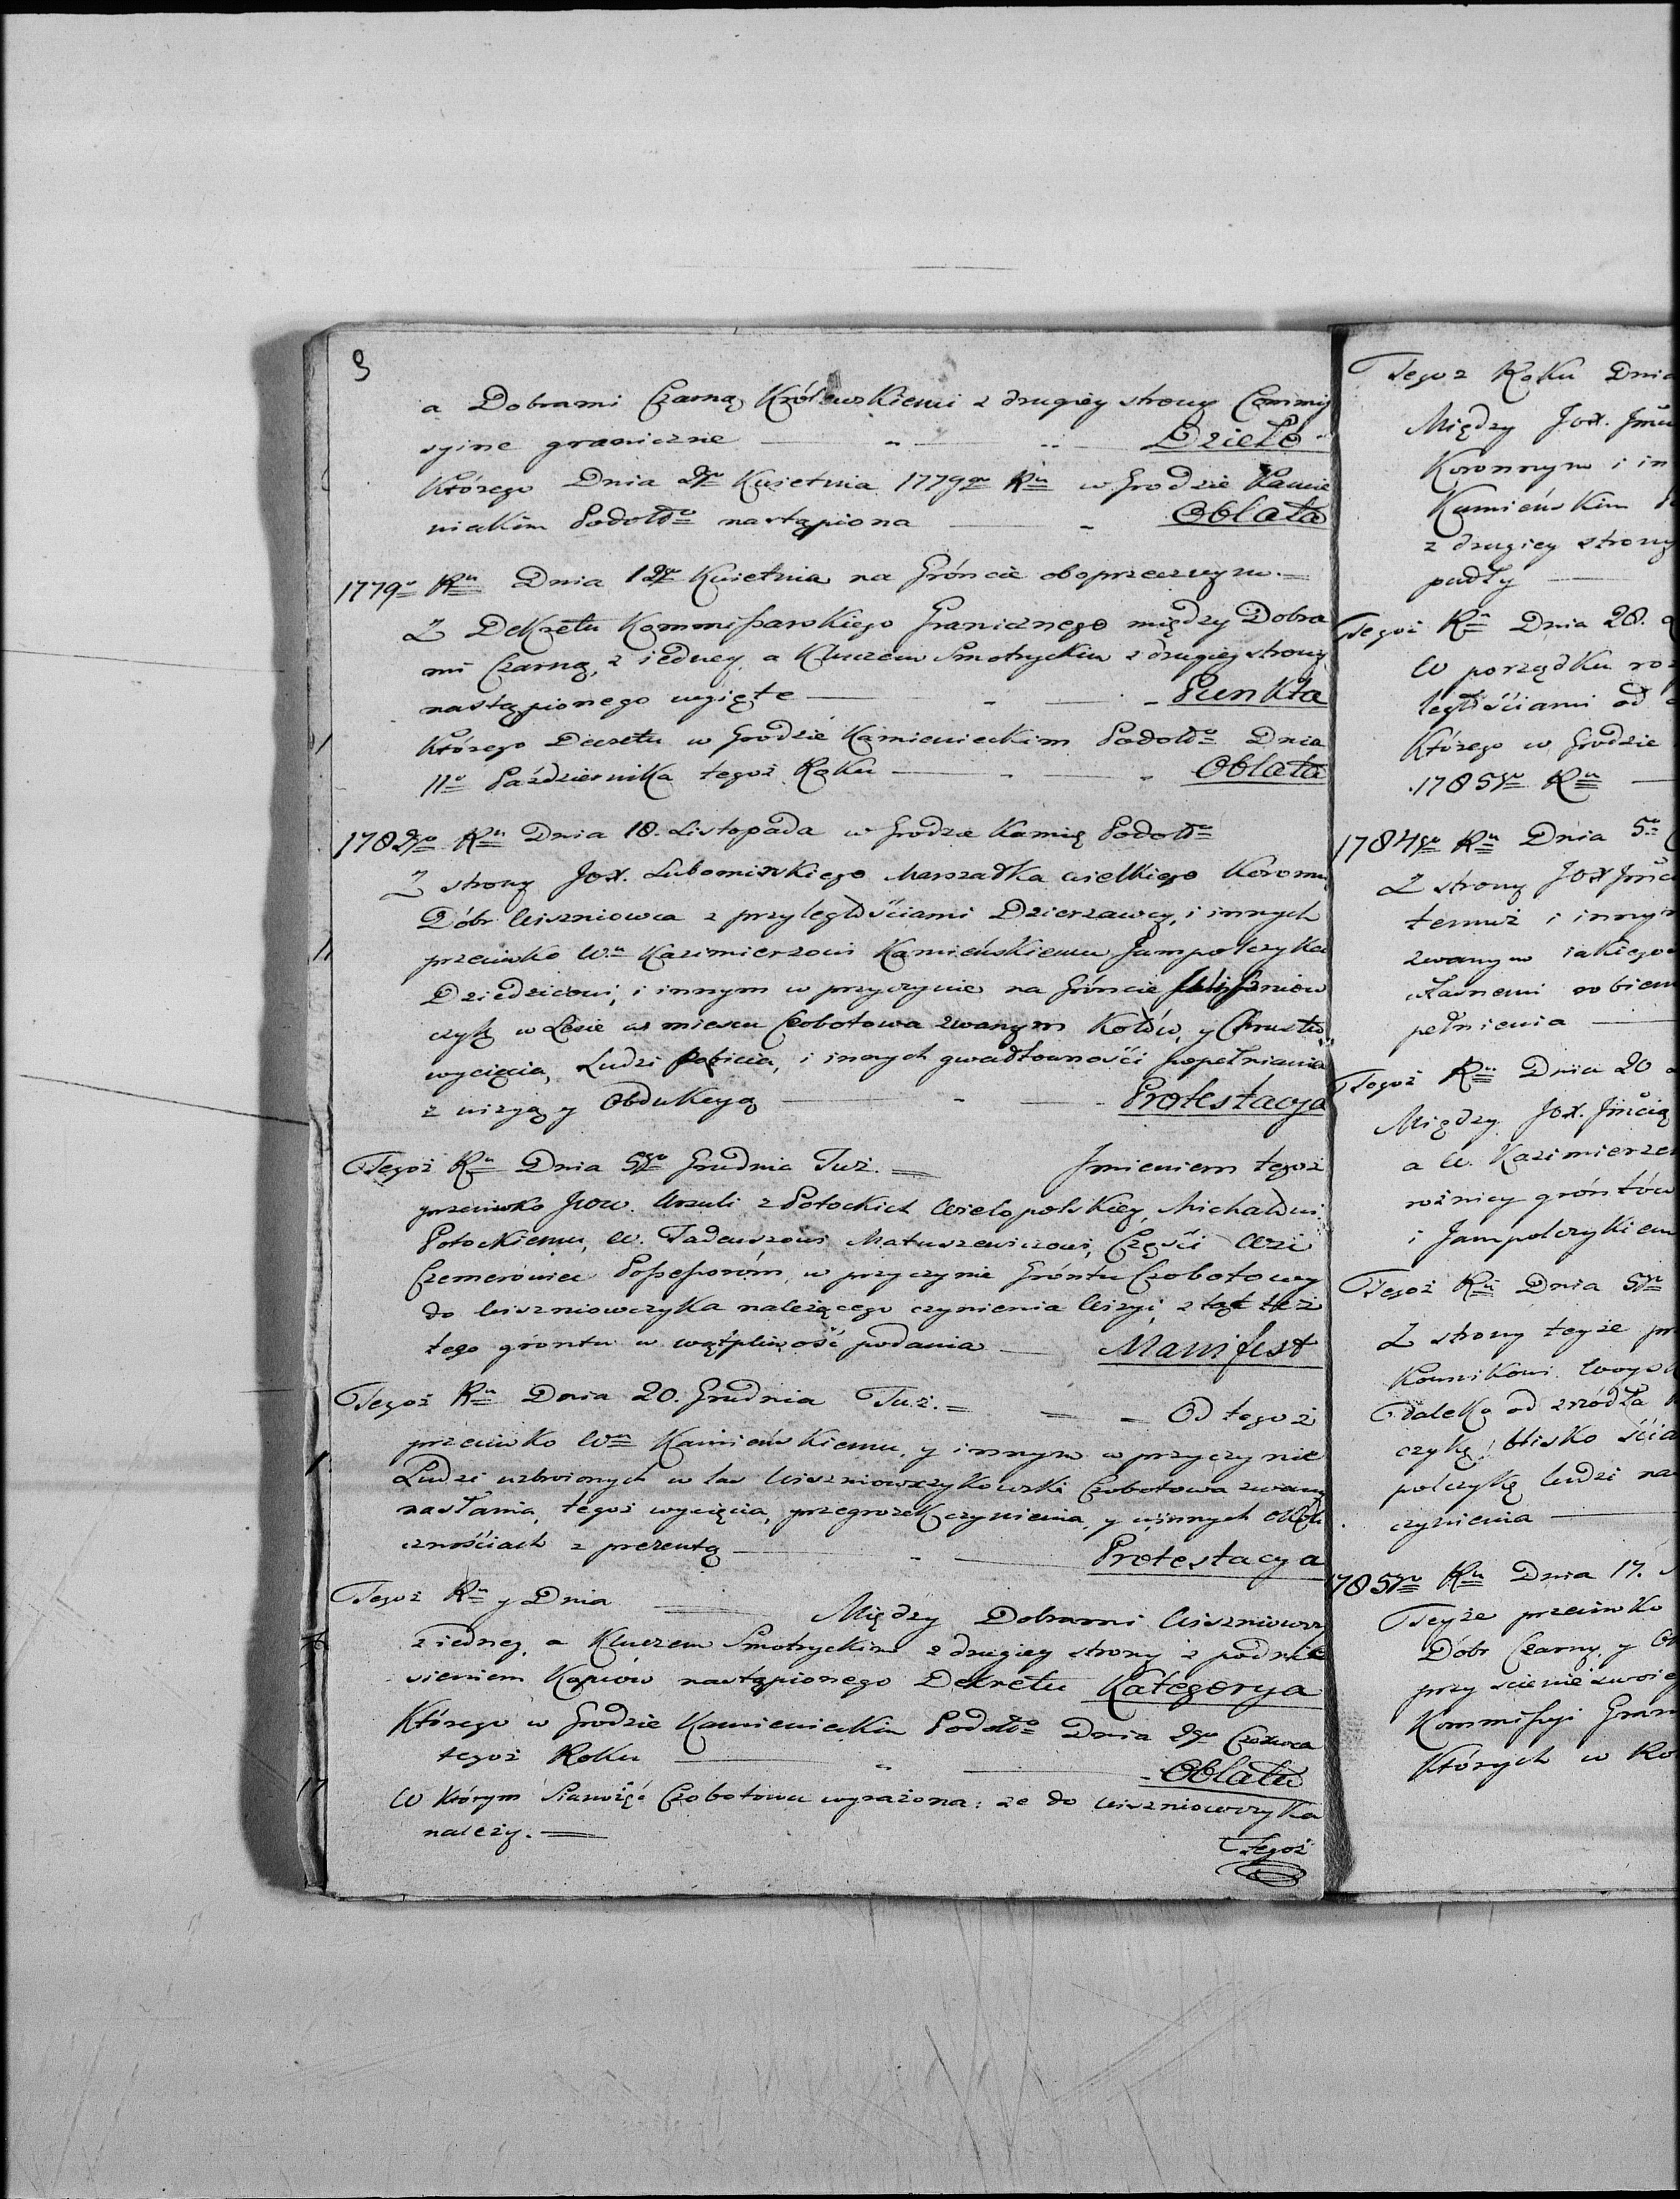 9
a Dobrami Czarną Królewskiemi z drugiey strony Commis
syine graniczne — Dzieło
Którego Dnia 2go Kwietnia 1779go Ru w Grodzie Kamie
nieckim Podolso nastąpiona — Oblata
1779o Ru Dnia 12go Kwietnia na Gróncie oboprzecznym. =
Z Dekretu Kommissarskiego Granicznego między Dobra
mi Czarną, z iedney a Kluczem Smotryckim z drugiey strony
nastąpionego wyięte — Punkta
Którego Decretu w Grodzie Kamienieckim Podolso Dnia
11o Października tegoż Roku — Oblata
1782go Ru Dnia 18. Listopada w Grodzie Kamię Podolso
Z strony JOX. Lubomirskiego Marszałka wielkiego Koronn
Dóbr Wiszniowca z przyległościami Dzierżawcy, i innych
przeciwko Wu Kazimierzowi Kamieńskiemu Jampolczyka
Dziedzicowi, i innym w przyczynie na Gróncie Wiszniow
czyk w Lesie w miescu Czobotowa zwanym Kołów, y Chrustu
wycięcia, Ludzi pobicia, i innych gwałtowności popełniania
z wizyą y Obdukcyą — Protestacya
Tegoż Ru Dnia 5go Grudnia Tuż. = Jmieniem tegoż
przeciwko JWW. Urszuli z Potockich Wielopolskiey, Michałowi
Potockiemu, W. Tadeuszowi Matuszewiczowi, Części Wsi
Czemerowiec Possessorom, w przyczynie Gróntu Czobotowey
do Wiszniowczyka należącego czynienia Wizyi, z tąt też
tego grontu w wątpliwość podania — Manifest
Tegoż Ru Dnia 20. Grudnia Tuż. = — Od tegoż
przeciwko Wu Kamieńskiemu, y innym w przyczynie
Ludzi uzbroionych w las Wiszniowczykowski Czobotowa zwany
nasłania, tegoż wycięcia, przegrożek czynienia, y w innych okoli
cznościach z prezentą — Protestacya
Tegoż Ru y Dnia — Między Dobrami Wiszniowcz
z iedney, a Kluczem Smotryckim z drugiey strony z podnie
sieniem Kopców nastąpionego Dekretu Kategorya
Którego w Grodzie Kamienieckim Podolso Dnia 2go Czerwca
tegoż Roku — Oblata
W którym Sianożęć Czobotowa wyrażona: że do Wiszniowczyka
należy. =
Tegoż
Tegoż Roku Dnia
Między JOX. Jmci
Koronnym i in
Kamieńskim
z drugiey strony
padły —
Tegoż Ru Dnia 28.
W porządku ro
ległościami od
Którego w Grodzie
1785go Ru —
1784go Ru Dnia 5o
Z strony JOX Jmci
temuż i innym
zwanym iakiego
własnemi robien
pełnienia —
Tegoż Ru Dnia 20
Między JOX. Jmcią
a W. Kazimierze
rożnicy gróntów
i Jampolczykiem
Tegoż Ru Dnia 5go
Z strony teyże pr
Konnikowi Woys
daleko od zrzódła
czyka, blisko ścia
polczyka, ludzi na
czynienia —
1785go Ru Dnia 17.
Teyże przeciwko
Dóbr Czarny, y
przy scienie swoiey
Kommissyi Gran
Których w Ro